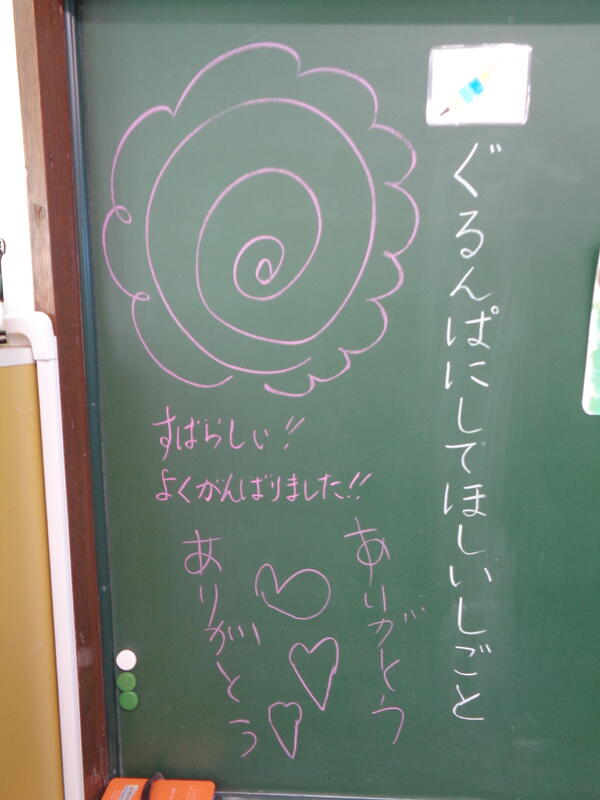 ぐるんぱにしてほしいしごと
すばらしい!!
よくがんばりました!!
ありがとう
ありがとう